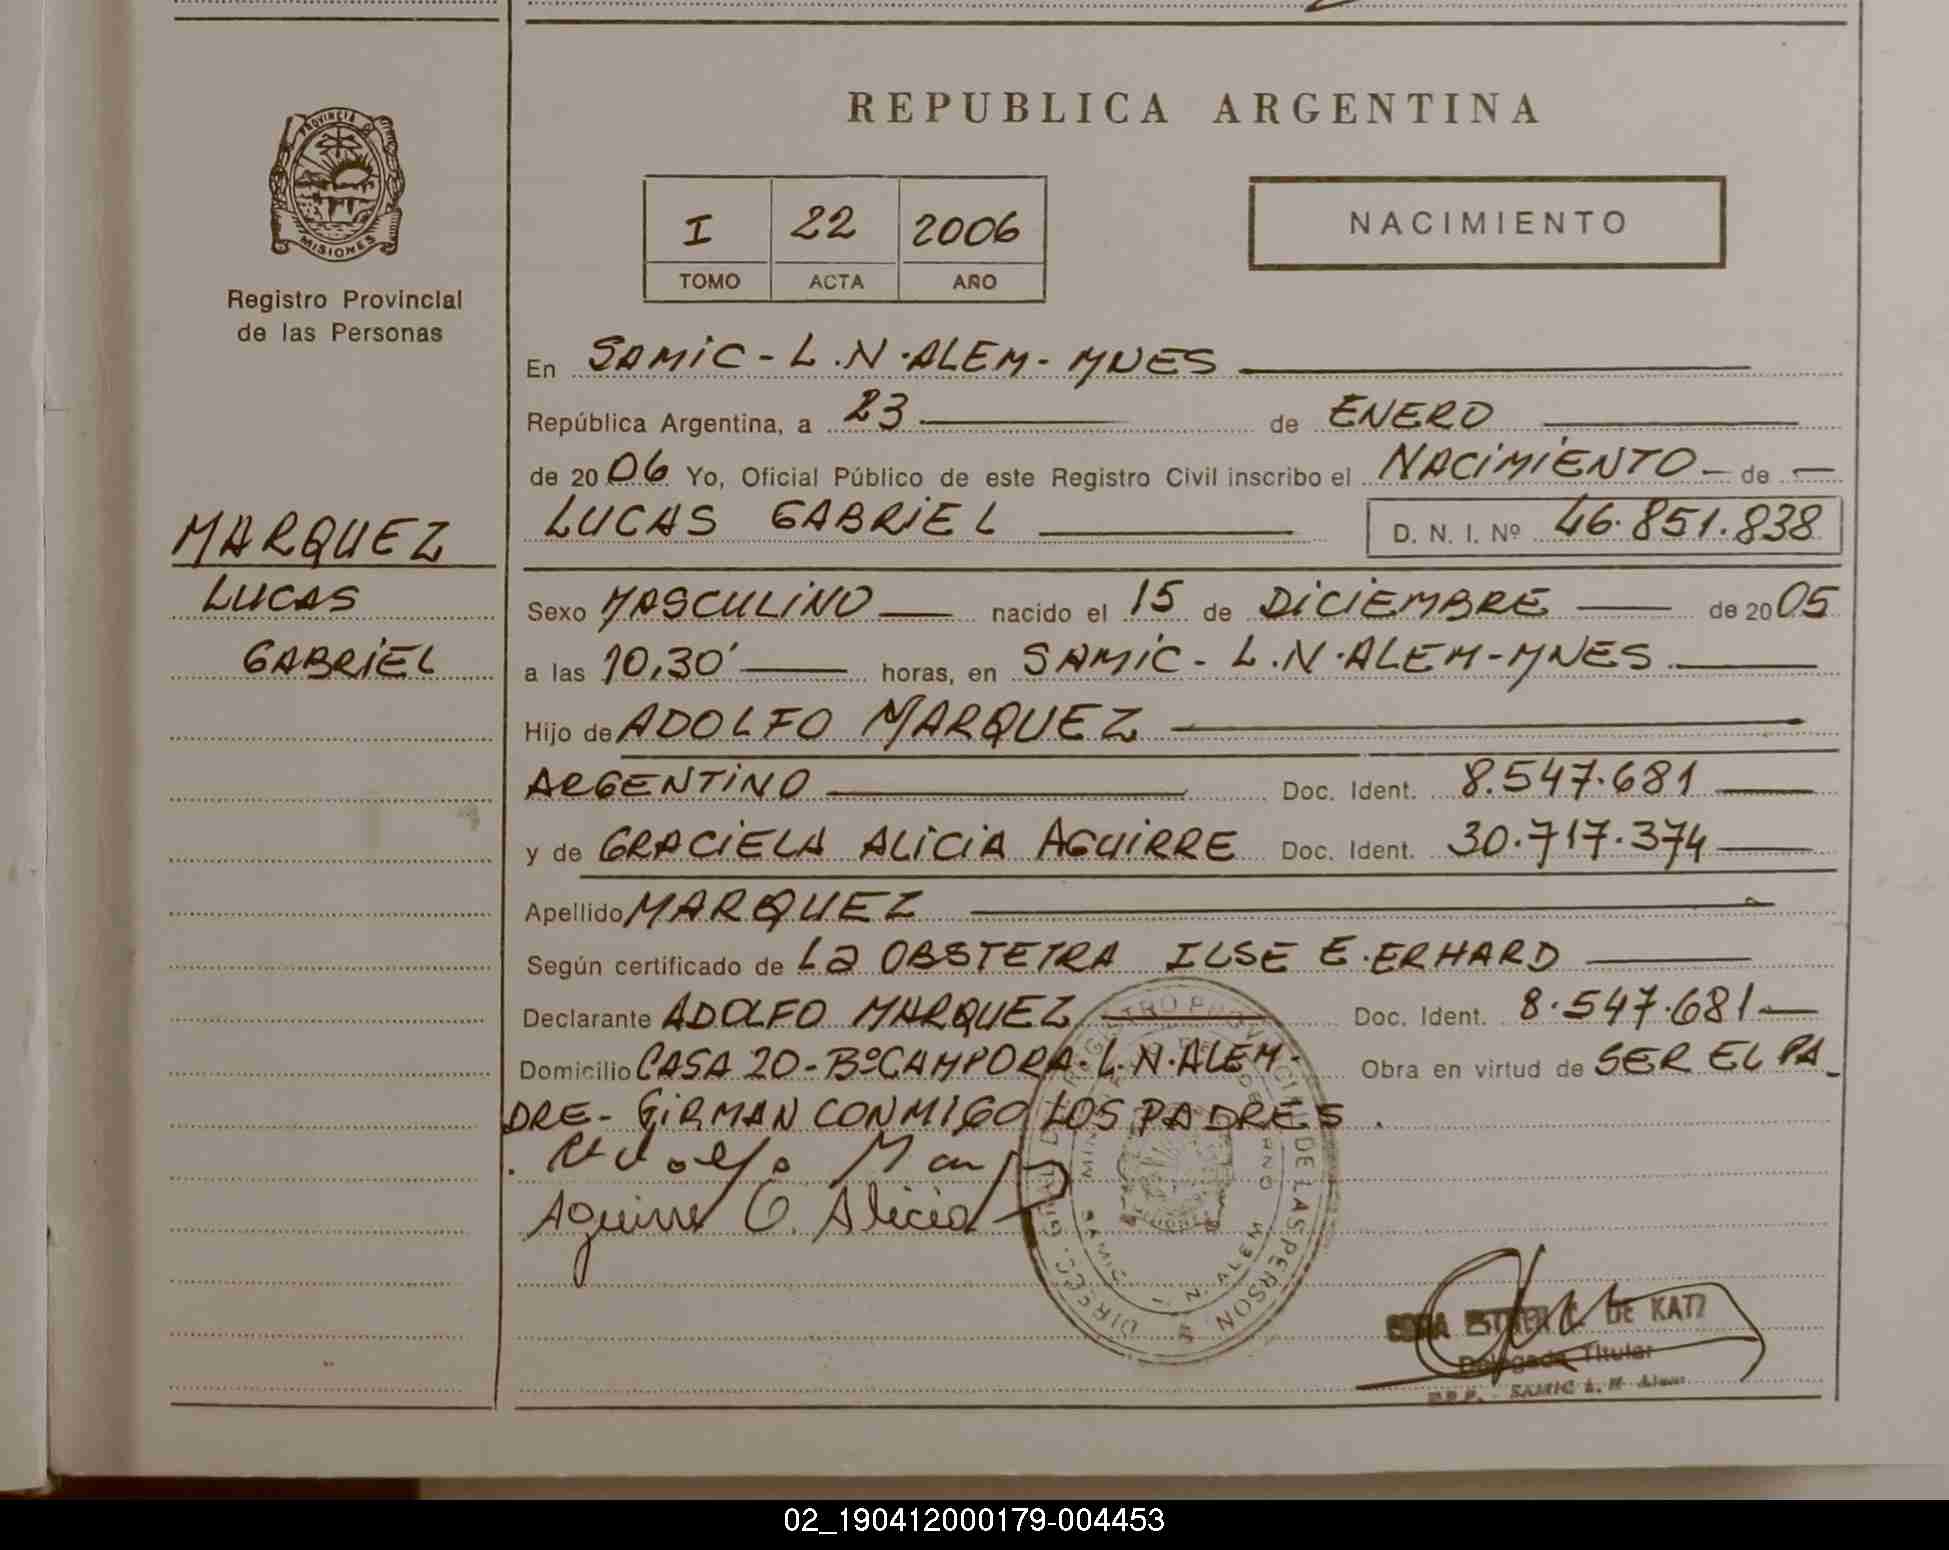 REPUBLICA ARGENTINA
PROVINCIA DE
MISIONES
Registro Provincial
de las Personas
I 22 2006
TOMO ACTA AÑO
NACIMIENTO
En SAMIC - L.N. ALEM - MNES
República Argentina, a 23 de ENERO
de 2006 Yo, Oficial Público de este Registro Civil inscribo el NACIMIENTO de
LUCAS GABRIEL D. N. I. Nº 46.851.838
MARQUEZ
LUCAS
GABRIEL
Sexo MASCULINO nacido el 15 de DICIEMBRE de 2005
a las 10,30' horas, en SAMIC - L.N. ALEM - MNES
Hijo de ADOLFO MARQUEZ
ARGENTINO Doc. Ident. 8.547.681
y de GRACIELA ALICIA AGUIRRE Doc. Ident. 30.717.374
Apellido MARQUEZ
Según certificado de La OBSTETRA ILSE E. ERHARD
Declarante ADOLFO MARQUEZ Doc. Ident. 8.547.681
Domicilio CASA 20 - Bº CAMPORA - L.N. ALEM - Obra en virtud de SER EL PA_
DRE - FIRMAN CONMIGO LOS PADRES.
Adolfo Mar
Aguirre G. Alicia
DIRECC. GRAL. DEL REGISTRO PROVINCIAL DE LAS PERSONAS
SAMIC L. N. ALEM
ESTHER C. DE KATZ
Delegada Titular
SAMIC L. N. Alem
02_190412000179-004453